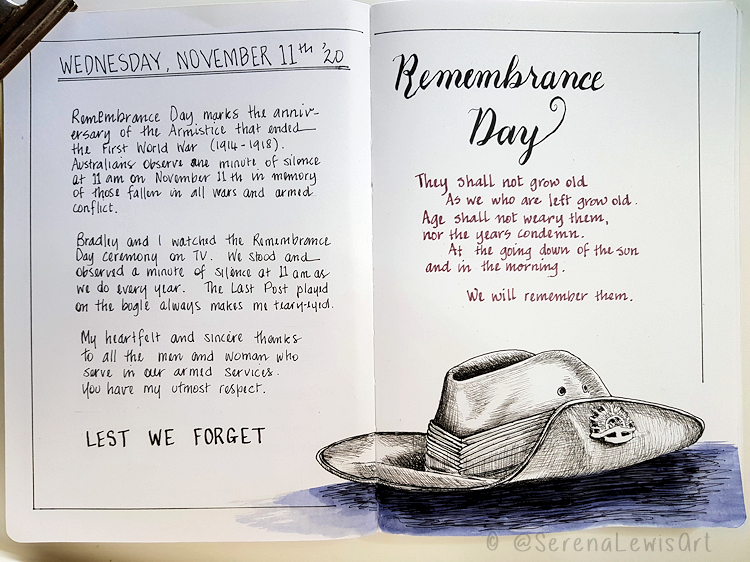 WEDNESDAY, NOVEMBER 11th '20
Remembrance Day marks the anniv-
ersary of the Armistice that ended
the First World War (1914-1918).
Australians observe one minute of silence
at 11 am on November 11th in memory
of those fallen in all wars and armed
conflict.
Bradley and I watched the Remembrance
Day ceremony on TV. We stood and
observed a minute of silence at 11 am as
we do every year. The Last Post played
on the bugle always makes me teary-eyed.
My heartfelt and sincere thanks
to all the men and woman who
serve in our armed services.
You have my utmost respect.
LEST WE FORGET
Remembrance
Day
They shall not grow old
As we who are left grow old.
Age shall not weary them,
nor the years condemn.
At the going down of the sun
and in the morning.
We will remember them.
© @SerenaLewisArt